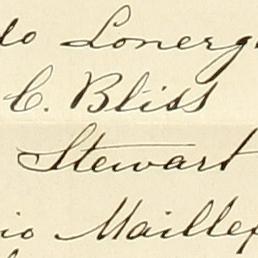 do Lonerg
C. Bliss
Stewart
io Maillef